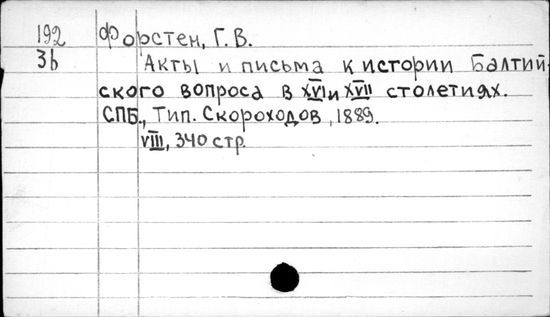 192 Форстен, Г. В.
3b Акты и письма к истории Балтий-
ского вопроса в XVI и XVII столетиях.
СПБ., Тип. Скороходов, 1889.
VIII, 340 стр.